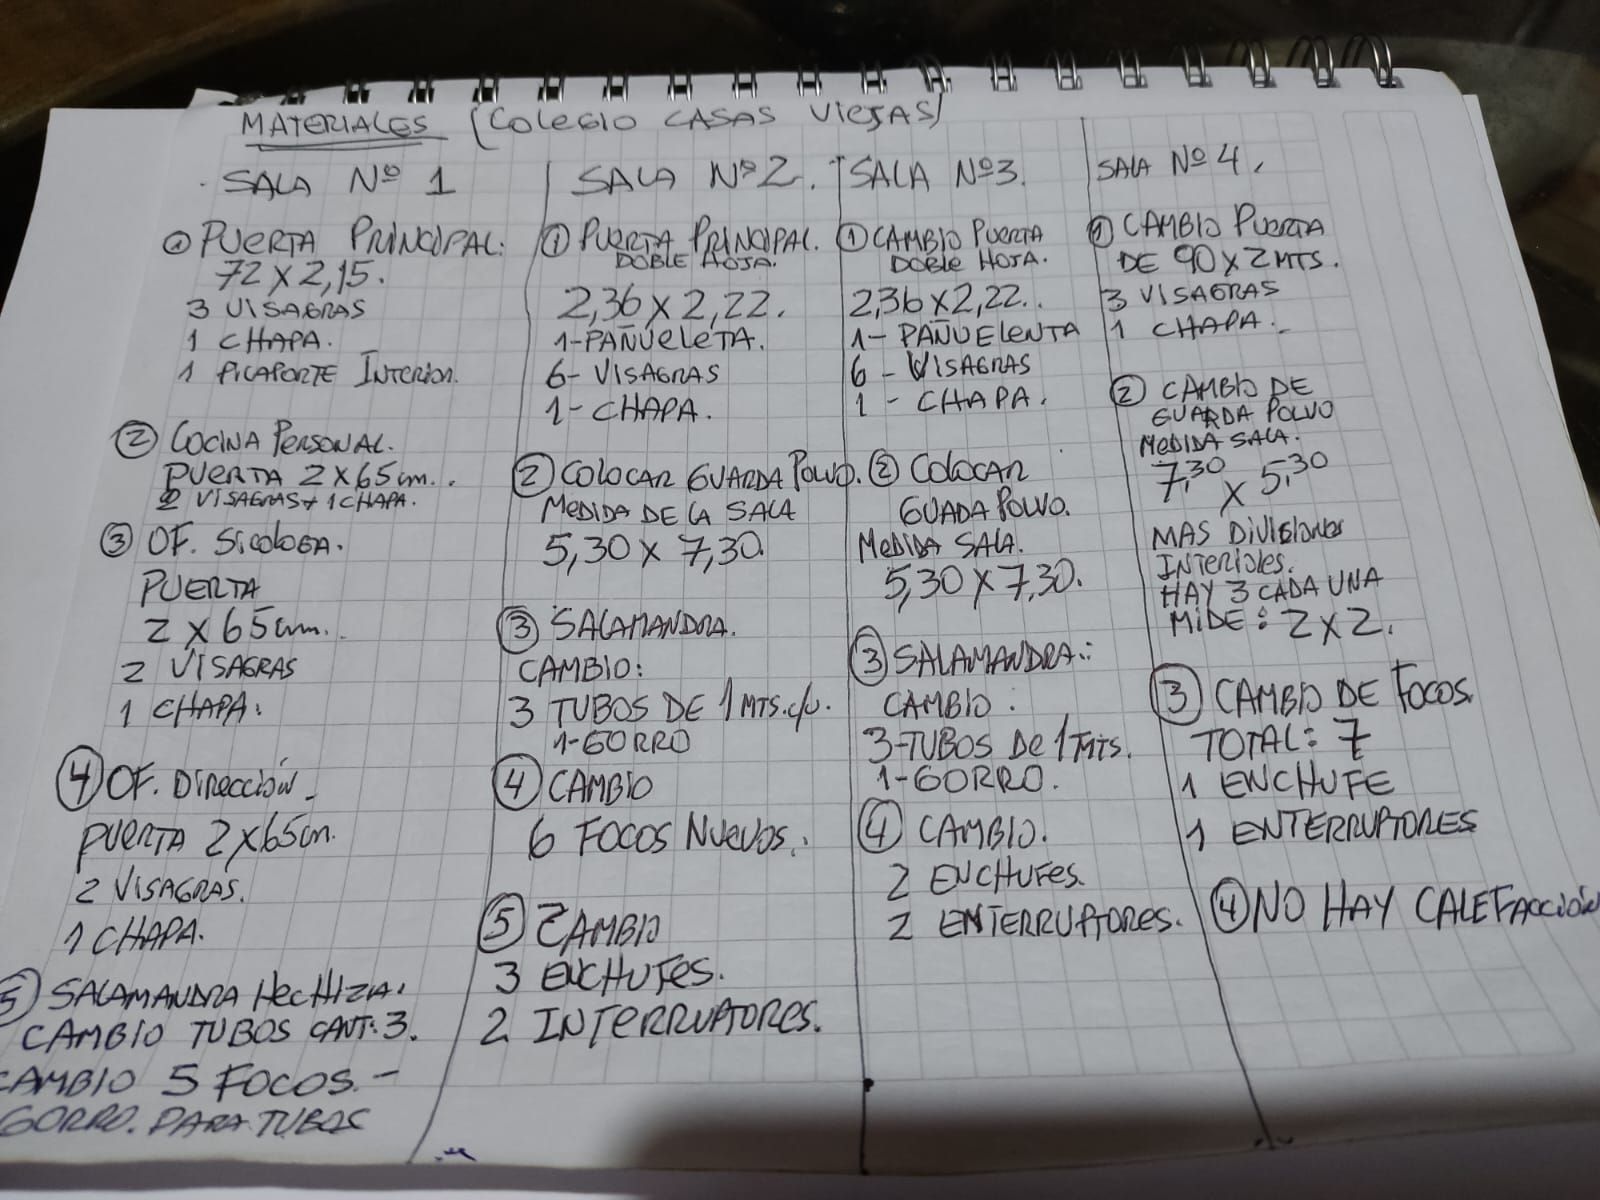 MATERIALES (COLEGIO CASAS VIEJAS)
SALA Nº 1
① PUERTA PRINCIPAL.
72 X 2,15.
3 VISAGRAS
1 CHAPA.
1 PICAPORTE INTERIOR.
② COCINA PERSONAL.
PUERTA 2 X 65 cm..
2 VISAGRAS + 1 CHAPA.
③ OF. SICOLOGA.
PUERTA
2 X 65 cm..
2 VISAGRAS
1 CHAPA.
④ OF. DIRECCIÓN.
PUERTA 2 X 65 cm.
2 VISAGRAS.
1 CHAPA.
⑤ SALAMANDRA HECHIZA.
CAMBIO TUBOS CANT: 3.
CAMBIO 5 FOCOS.-
GORRO. PARA TUBOS
SALA Nº 2.
① PUERTA PRINCIPAL.
DOBLE HOJA.
2,36 X 2,22.
1-PAÑUELETA.
6- VISAGRAS
1- CHAPA.
② COLOCAR GUARDA POLVO.
MEDIDA DE LA SALA
5,30 X 7,30.
③ SALAMANDRA.
CAMBIO:
3 TUBOS DE 1 MTS. c/u.
1-GORRO
④ CAMBIO
6 FOCOS NUEVOS.
⑤ CAMBIO
3 ENCHUFES.
2 INTERRUPTORES.
SALA Nº 3.
① CAMBIO PUERTA
DOBLE HOJA.
2,36 X 2,22..
1- PAÑUELENTA
6 - VISAGRAS
1 - CHAPA.
② COLOCAR
GUADA POLVO.
MEDIDA SALA.
5,30 X 7,30.
③ SALAMANDRA:
CAMBIO:
3-TUBOS DE 1 MTS.
1-GORRO.
④ CAMBIO.
2 ENCHUFES.
2 ENTERRUPTORES.
SALA Nº 4.
① CAMBIO PUERTA
DE 90 X 2 MTS.
3 VISAGRAS
1 CHAPA.-
② CAMBIO DE
GUARDA POLVO
MEDIDA SALA.
7,30 X 5,30
MAS DIVISIONES
INTERIORES.
HAY 3 CADA UNA
MIDE: 2 X 2.
③ CAMBIO DE FOCOS.
TOTAL: 7
1 ENCHUFE
1 ENTERRUPTORES
④ NO HAY CALEFACCIÓN